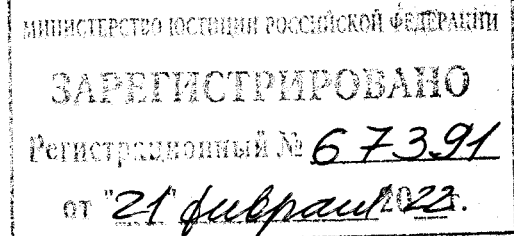 МИНИСТЕРСТВО ЮСТИЦИИ РОССИЙСКОЙ ФЕДЕРАЦИИ
ЗАРЕГИСТРИРОВАНО
Регистрационный № 67391
от "21" февраля 2022 г.